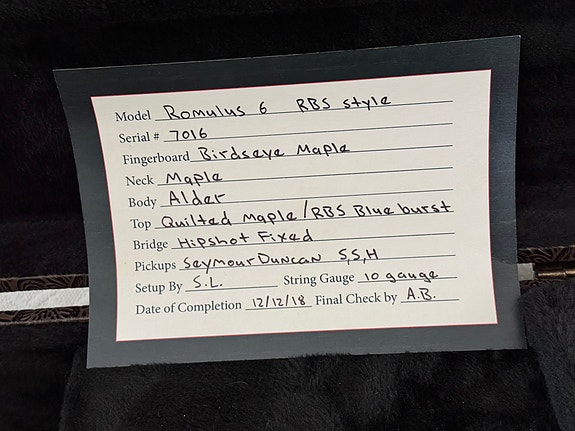 Model Romulus 6 RBS style
Serial # 7016
Fingerboard Birdseye Maple
Neck Maple
Body Alder
Top Quilted Maple/RBS Blue burst
Bridge Hipshot Fixed
Pickups Seymour Duncan S,S,H
Setup By S.L. String Gauge 10 gauge
Date of Completion 12/12/18 Final Check by A.B.